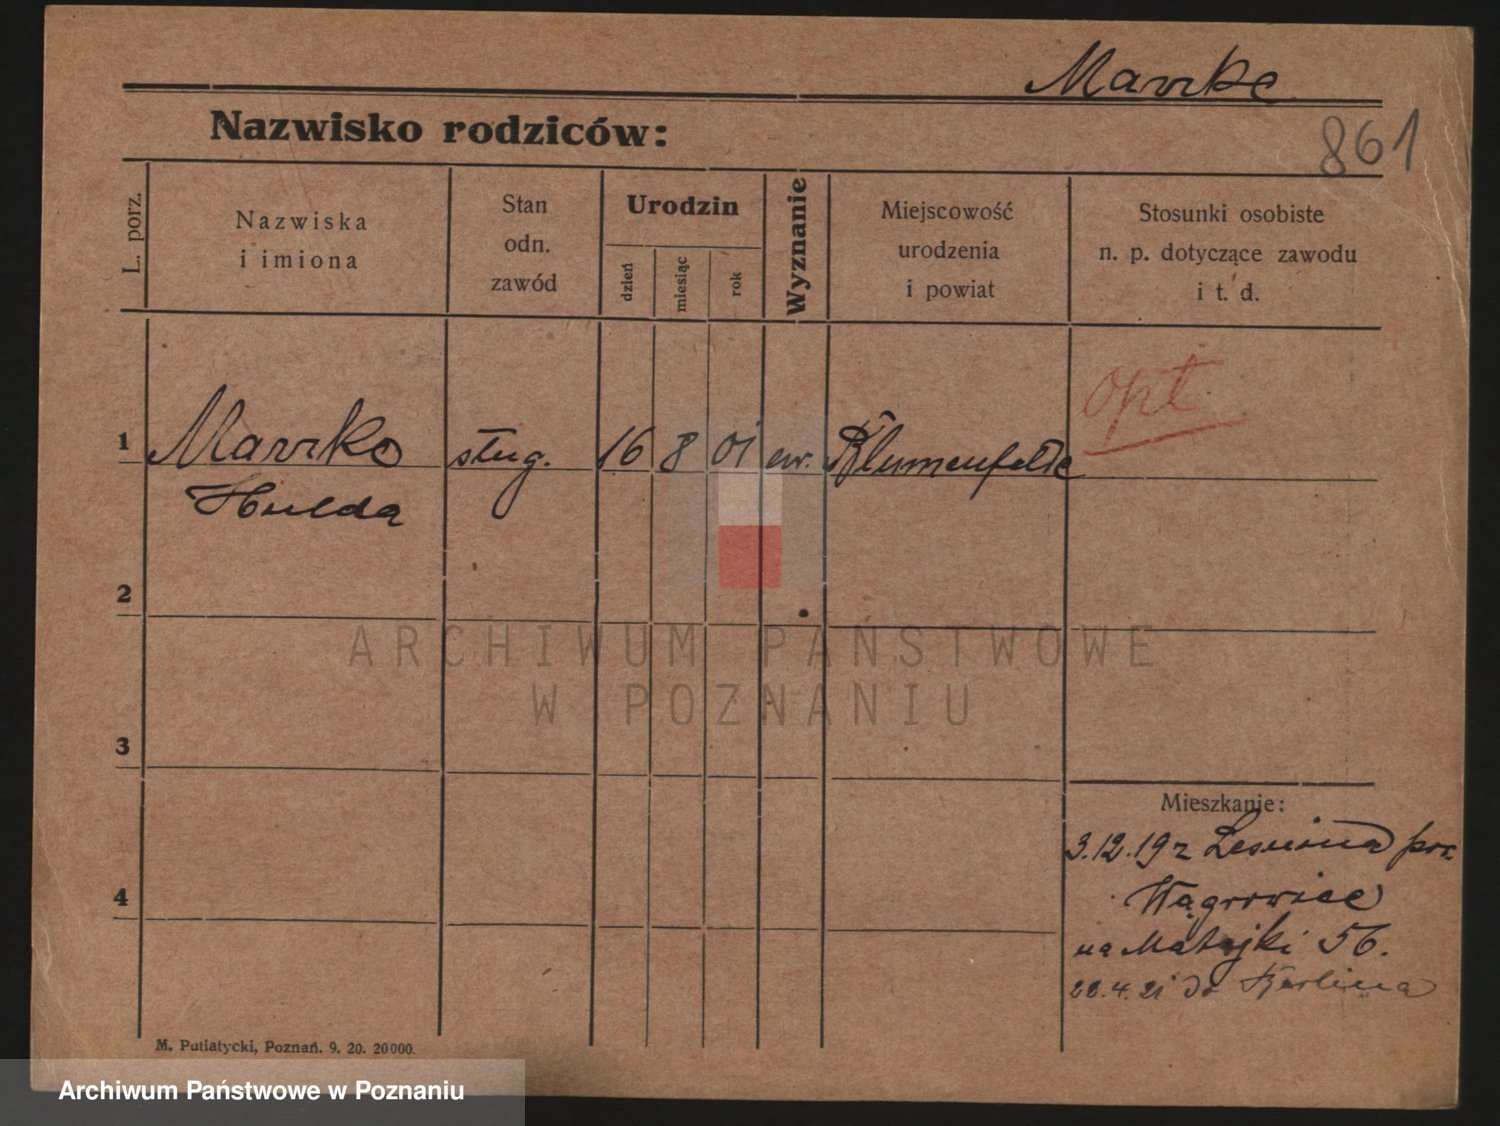 Marzke
861
Nazwisko rodziców:
L. porz.
Nazwiska
i imiona
Stan
odn.
zawód
Urodzin
dzień
miesiąc
rok
Wyznanie
Miejscowość
urodzenia
i powiat
Stosunki osobiste
n. p. dotyczące zawodu
i t. d.
opt
1 Marzke służ. 16 8 01 ew. Blumenfelde
Hulda
2
3
4
ARCHIWUM PAŃSTWOWE
W POZNANIU
Mieszkanie:
3.12.19 z pow.
Wągrowiec
na Matejki 56.
22.4.21 do Berlina
M. Putiatycki, Poznań. 9. 20. 20000.
Archiwum Państwowe w Poznaniu